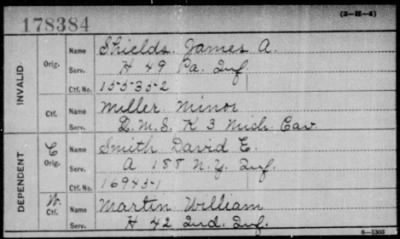 178384
(3-III-4)
INVALID
Orig.
Name Shields. James A.
Serv. H 49 Pa. Inf
Ctf. No. 155352
Ctf.
Name Miller Minor
Serv. D.M.S. K 3 Mich. Cav
DEPENDENT
C Orig.
Name Smith David E.
Serv. A 188 N.Y. Inf.
Ctf. No. 169451
W. Ctf.
Name Martin William
Serv. H 42 Ind. Inf.